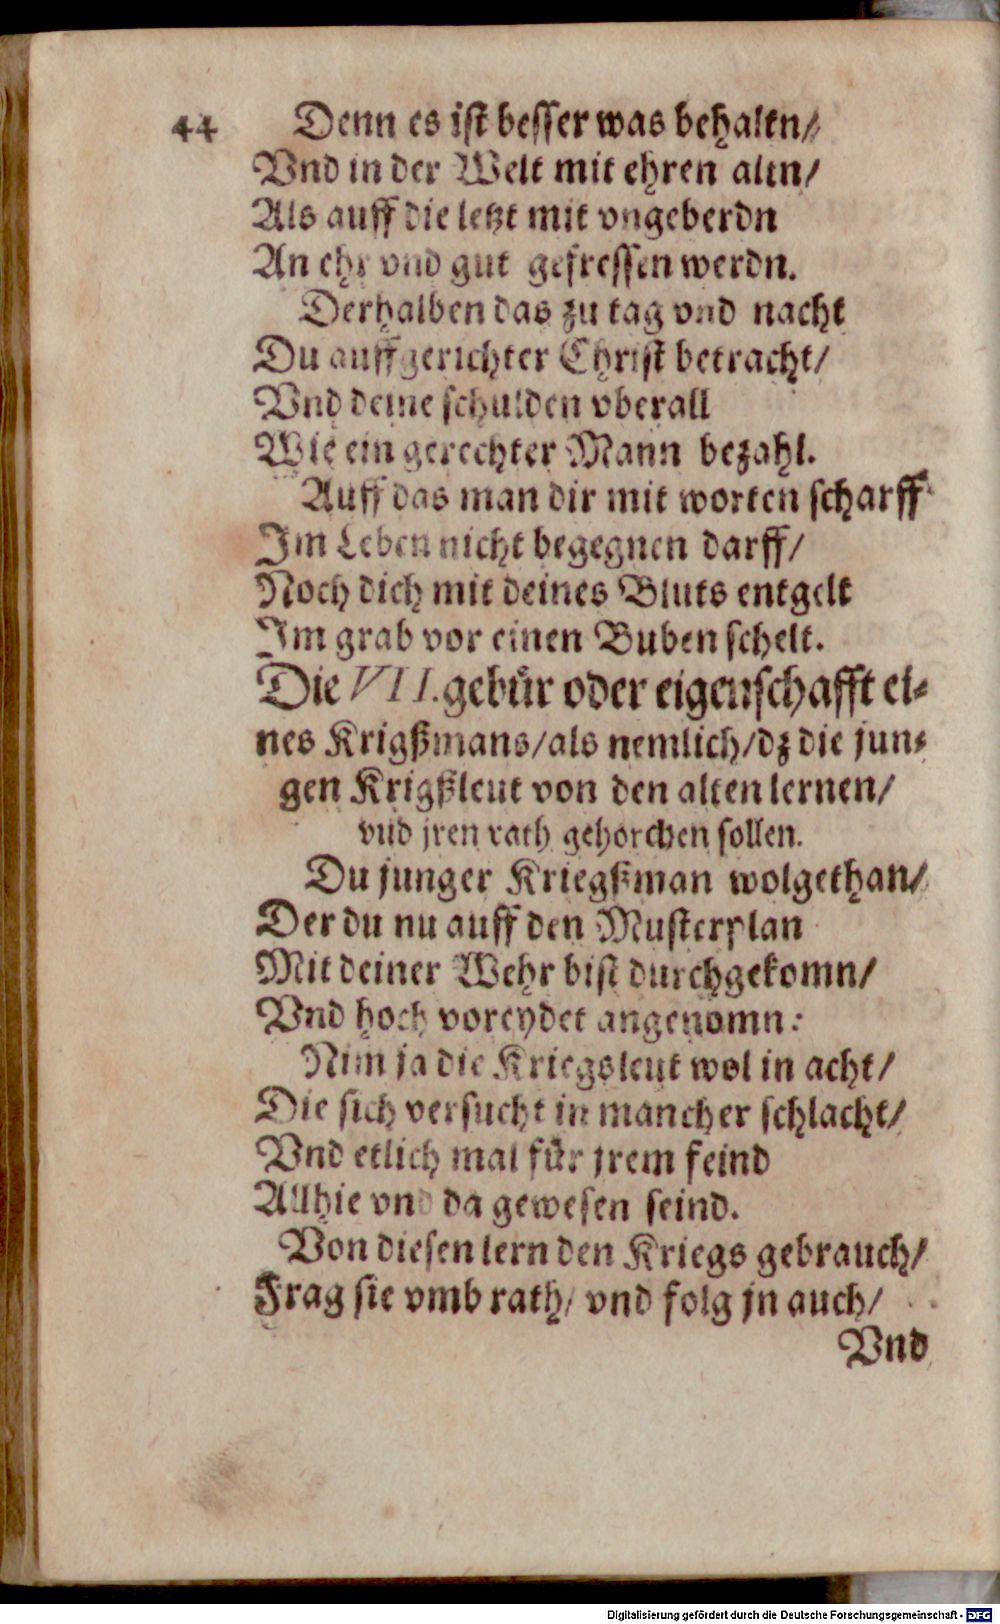 44 Denn es ist besser was behaltn/
Vnd in der Welt mit ehren altn/
Als auff die letzt mit vngeberdn
An ehr vnd gut gefressen werdn.
Derhalben das zu tag vnd nacht
Du auffgerichter Christ betracht/
Vnd deine schulden vberall
Wie ein gerechter Mann bezahl.
Auff das man dir mit worten scharff
Im Leben nicht begegnen darff/
Noch dich mit deines Bluts entgelt
Im grab vor einen Buben schelt.
Die VII. gebůr oder eigenschafft ei-
nes Krigßmans/als nemlich/dz die jun-
gen Krigßleut von den alten lernen/
vnd jren rath gehorchen sollen.
Du junger Kriegßman wolgethan/
Der du nu auff den Musterplan
Mit deiner Wehr bist durchgekomn/
Vnd hoch voreydet angenomn:
Nim ja die Kriegsleut wol in acht/
Die sich versucht in mancher schlacht/
Vnd etlich mal fůr jrem feind
Allhie vnd da gewesen seind.
Von diesen lern den Kriegs gebrauch/
Frag sie vmb rath/ vnd folg jn auch/
Vnd
Digitalisierung gefördert durch die Deutsche Forschungsgemeinschaft - DFG